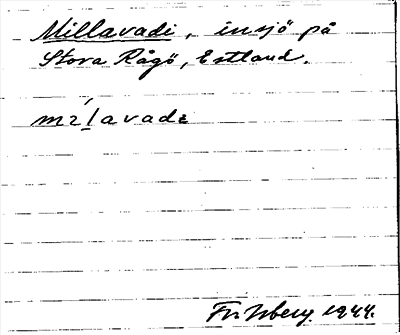 Millavadi, insjö på
Stora Rågö, Estland.
mɪ́l̲avadɪ
1944.